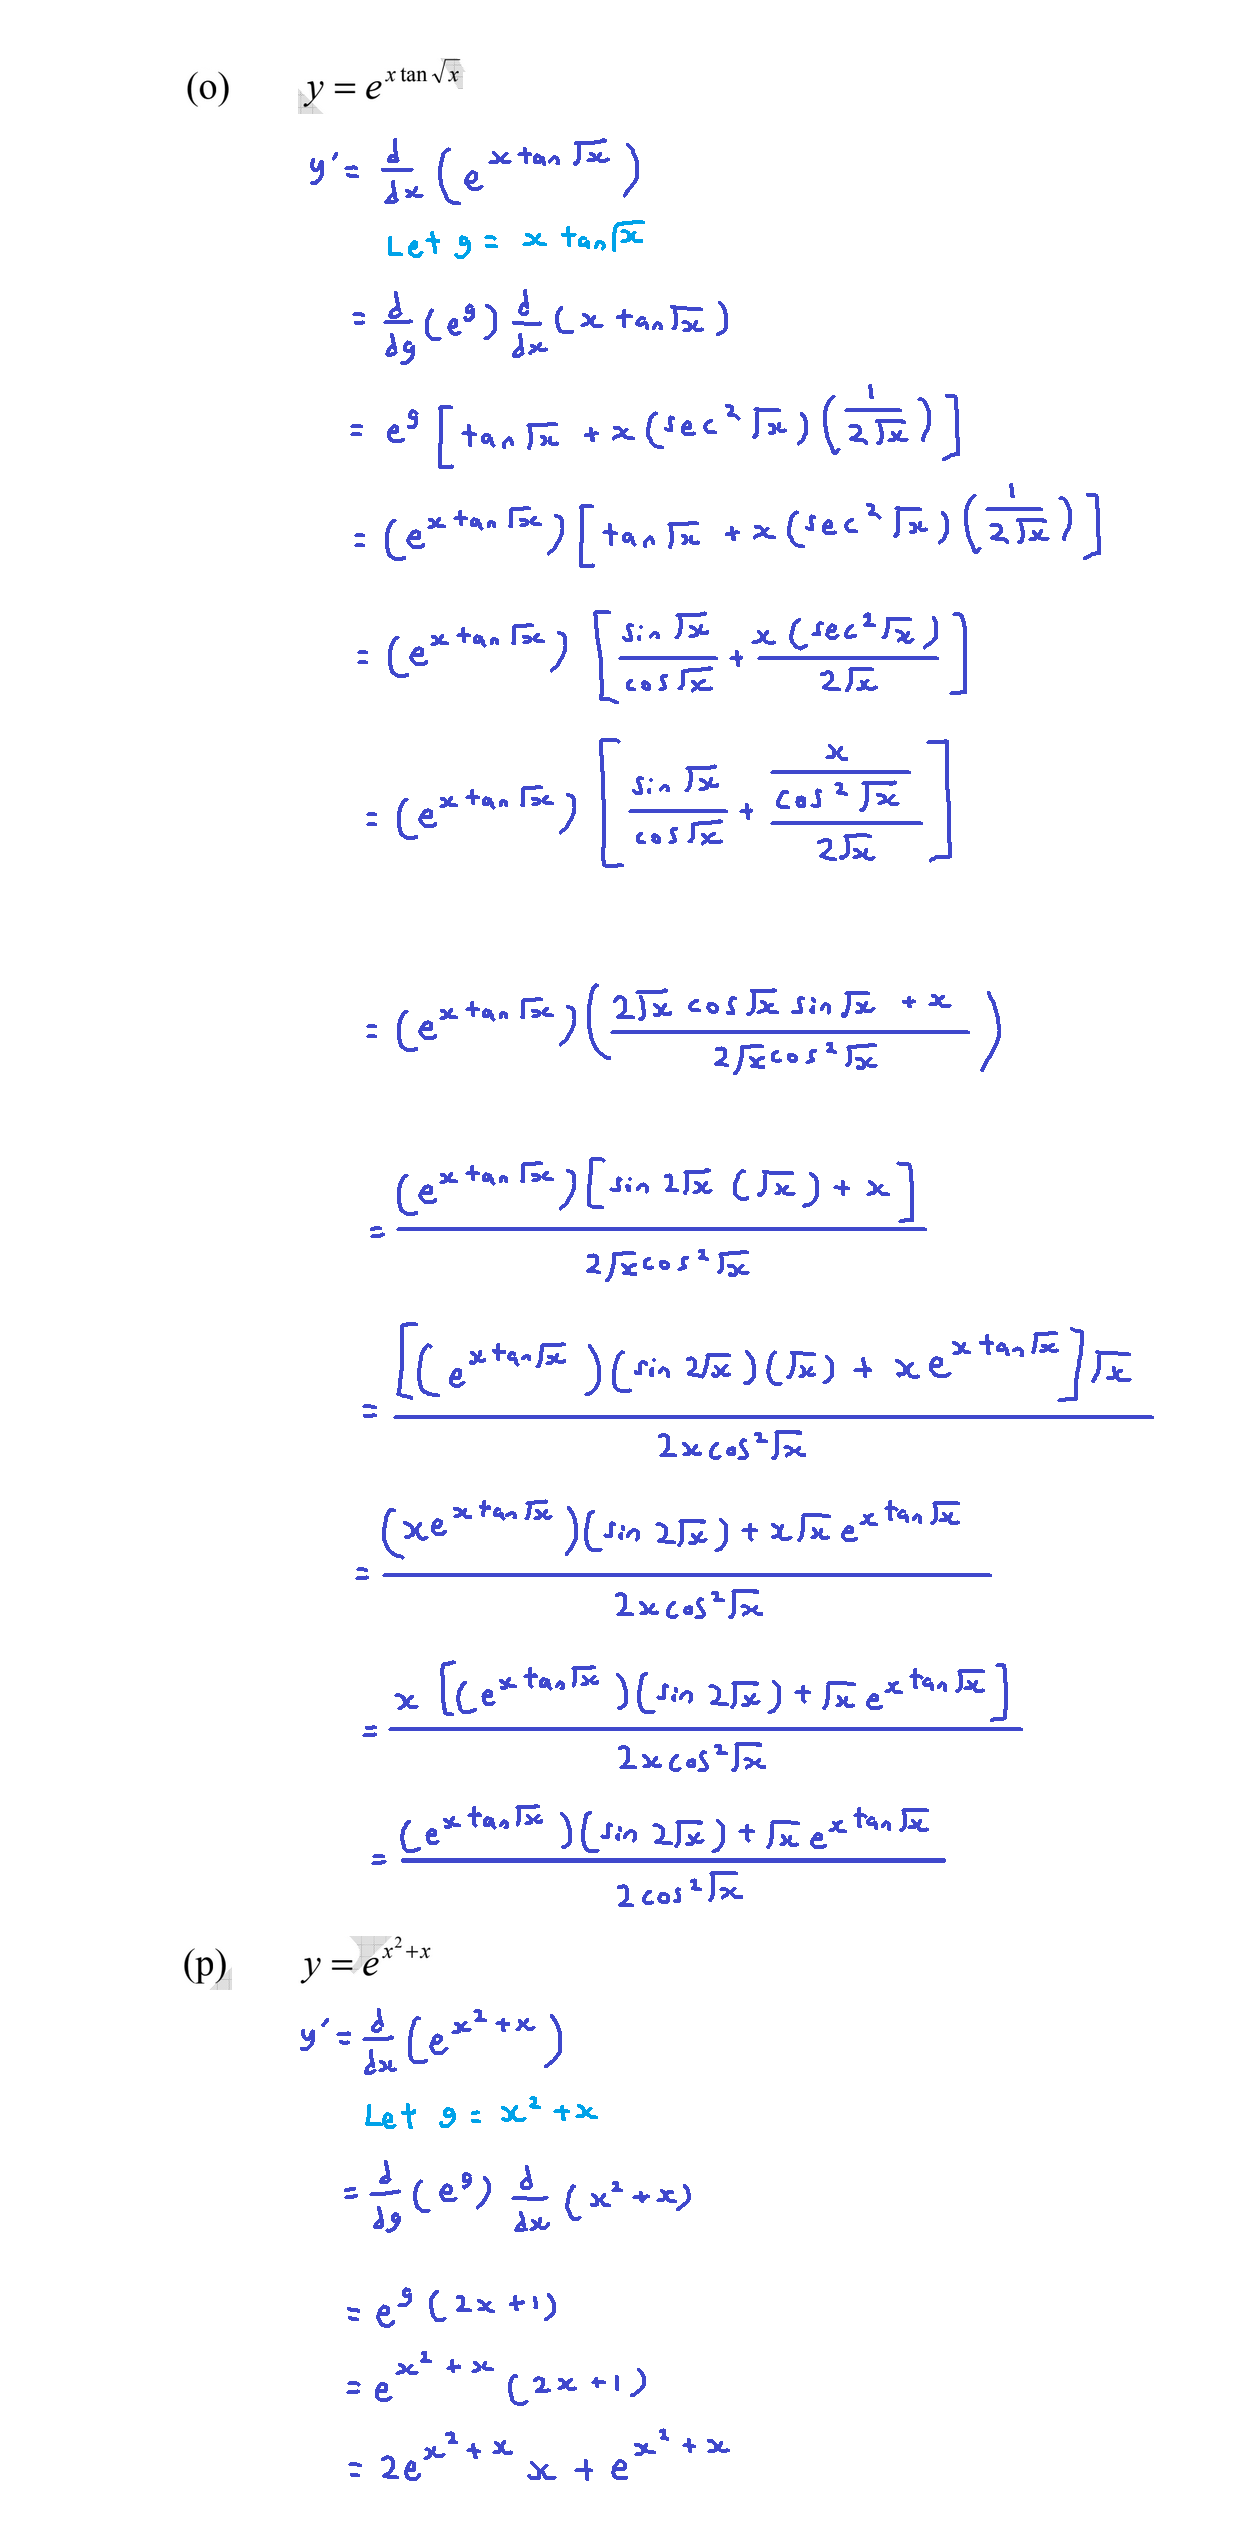 (o) y = e^{x tan √x}
y′ = d/dx (e^{x tan √x})
Let g = x tan √x
= d/dg (e^g) d/dx (x tan √x)
= e^g [tan √x + x (sec² √x) (1/(2√x))]
= (e^{x tan √x}) [tan √x + x (sec² √x) (1/(2√x))]
= (e^{x tan √x}) [sin √x / cos √x + x (sec² √x) / (2√x)]
= (e^{x tan √x}) [sin √x / cos √x + (x / cos² √x) / (2√x)]
= (e^{x tan √x}) ((2√x cos √x sin √x + x) / (2√x cos² √x))
= (e^{x tan √x}) [sin 2√x (√x) + x] / (2√x cos² √x)
= [(e^{x tan √x}) (sin 2√x) (√x) + x e^{x tan √x}] √x / (2x cos² √x)
= ((x e^{x tan √x}) (sin 2√x) + x√x e^{x tan √x}) / (2x cos² √x)
= x [(e^{x tan √x}) (sin 2√x) + √x e^{x tan √x}] / (2x cos² √x)
= ((e^{x tan √x}) (sin 2√x) + √x e^{x tan √x}) / (2 cos² √x)
(p) y = e^{x²+x}
y′ = d/dx (e^{x²+x})
Let g = x² + x
= d/dg (e^g) d/dx (x² + x)
= e^g (2x + 1)
= e^{x²+x} (2x + 1)
= 2e^{x²+x} x + e^{x²+x}